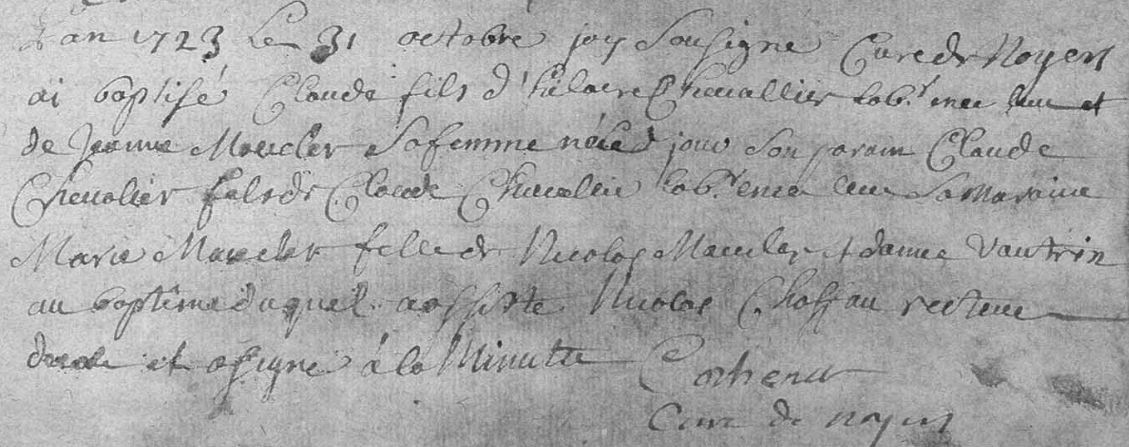 L'an 1723 Le 31 octobre jay Sousigne Cure de Noyers
ai baptisé Claude fils d'hilaire Chevallier lab.r et
de Jeanne Maucler Sa femme née jour Son parain Claude
Chevalier fils de Claude Chevallier lab.r Sa Maraine
Marie Maucler fille de Nicolas Maucler et danne Vautrin
au baptême duquel a assisté Nicolas recteur
et a signé à la Minutte
Cure de noyers